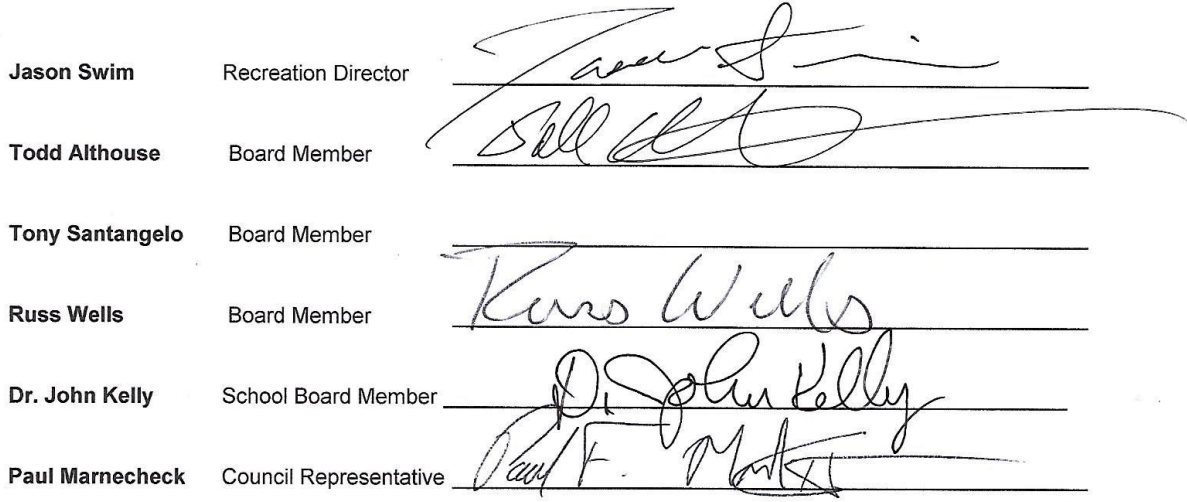 Jason Swim Recreation Director Jason Swim
Todd Althouse Board Member
Tony Santangelo Board Member
Russ Wells Board Member Russ Wells
Dr. John Kelly School Board Member Dr. John Kelly
Paul Marnecheck Council Representative Paul F.